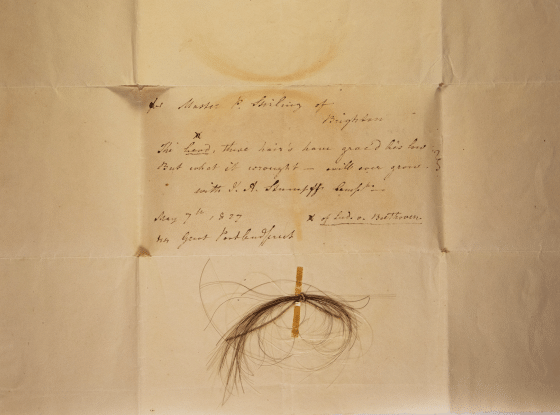 for Master P. Stirling of
Brighton
x
The Head, these hair's have grac'd lies low
But what it wrought – will ever grow –
with J. A. Stumpff Compts –
May 7th 1827
x of Lud. v. Beethoven.
Great Portland Street